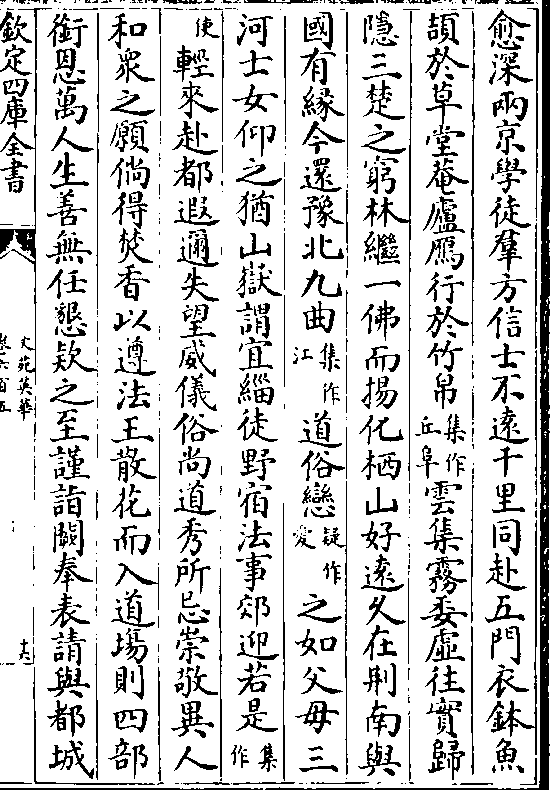 愈深兩京學徒羣方信士不遠千里同赴五門衣鉢魚
頡於草堂菴廬鴈行於竹帛集作丘阜雲集霧委虛往實歸
隱三楚之窮林繼一佛而揚化栖山好遠久在荆南與
國有縁今還豫北九曲集作江道俗戀疑作愛之如父母三
河士女仰之猶山嶽謂宜緇徒野宿法事郊迎若是集作
使輕來赴都遐邇失望威儀俗尚道秀所忌崇敬異人
和衆之願倘得焚香以遵法王散花而入道塲則四部
銜恩萬人生善無任懇欵之至謹詣闕奉表請與都城
欽定四庫全書
文苑英華
卷六百五
十六